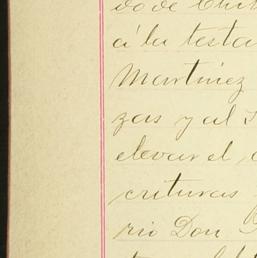 do de Chih
á la testa
Martinez
zas y al
elevar el
crituras
rio Don